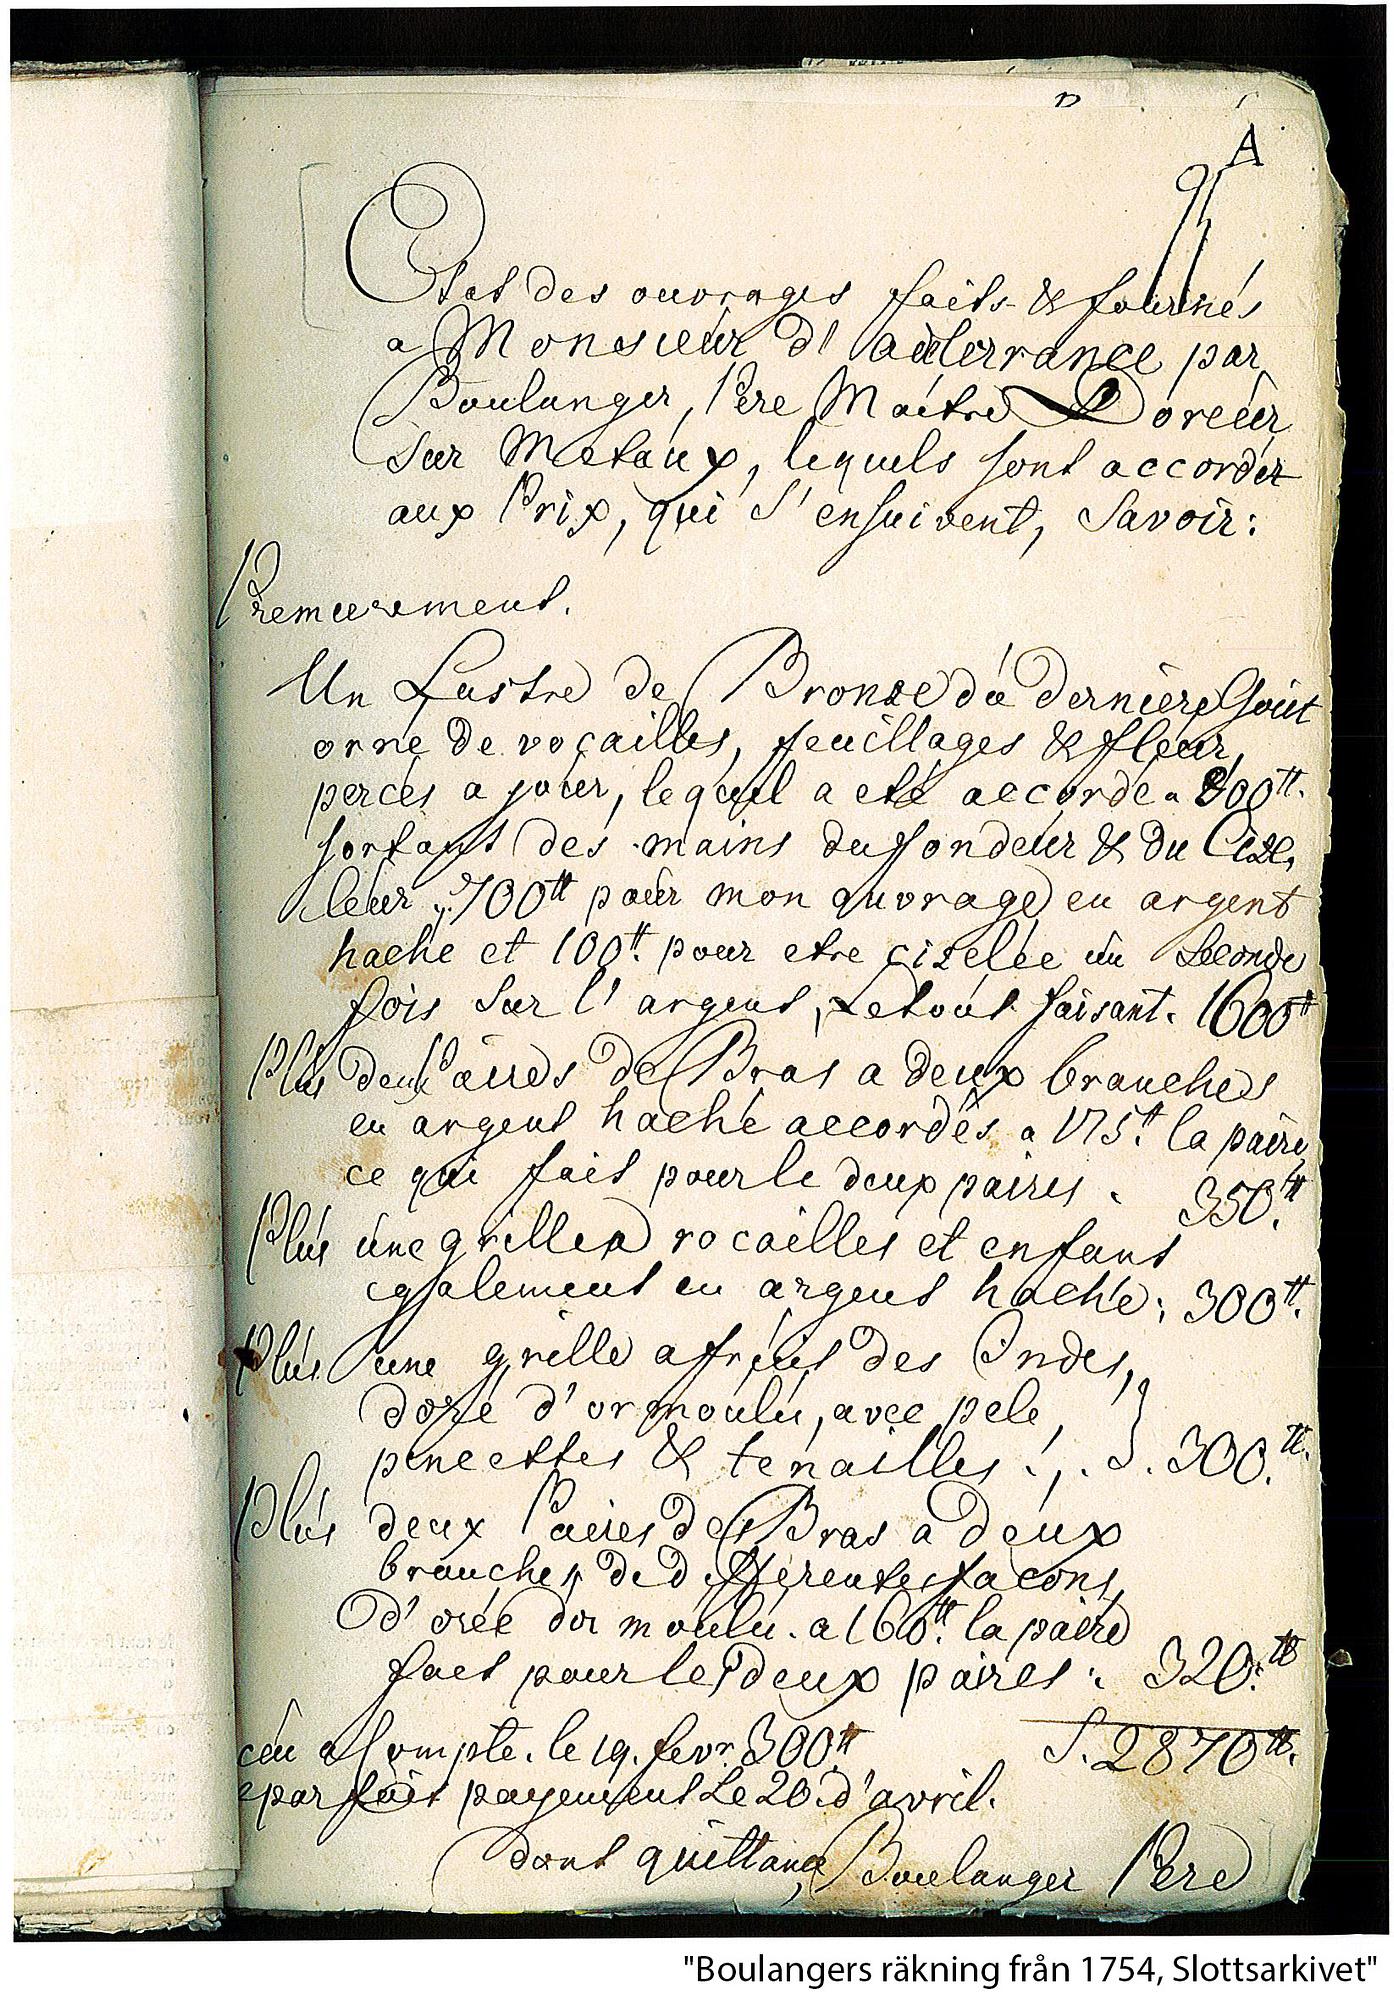 A
Etat des ouvrages faits & fournés
a Monsieur d' auterrance par
Boulanger, Père Maitre Doreur
sur Metaux, lequels sont accordéz
aux Prix, qui s'ensuivent, Savoir:
Premierement.
Un Lustre de Bronze du derniere Gout
orne de rocailles, feuillages & fleur,
percés a jour, lequel a eté accorde a 800tt.
sortant des mains du fondeur & du Cize,
leur, 700tt pour mon ouvrage en argent
haché et 100tt. pour etre cizelée un seconde
fois sur l'argent, Le tout faisant. 1600tt
Plus deux Paires de Bras a deux branches
en argent haché accordés a 175tt. la paire,
ce qui fait pour le deux paires. 350.tt
Plus une grille a rocailles et enfans
egalement en argent haché; 300tt.
Plus une grille a fruit des Indes,
doré d'or moulu, avec pele,
pincettes & tenailles. 300.tt.
Plus deux Paires de Bras a deux
branches, de differentes facons,
d'orée dor moulu. a 160.tt la paire
fait pour les deux paires: 320.tt
S. 2870tt.
ceu a Compte. le 19. fevr. 300tt
parfait payement Le 20. d'avril.
dont quittance, Boulanger Père
"Boulangers räkning från 1754, Slottsarkivet"